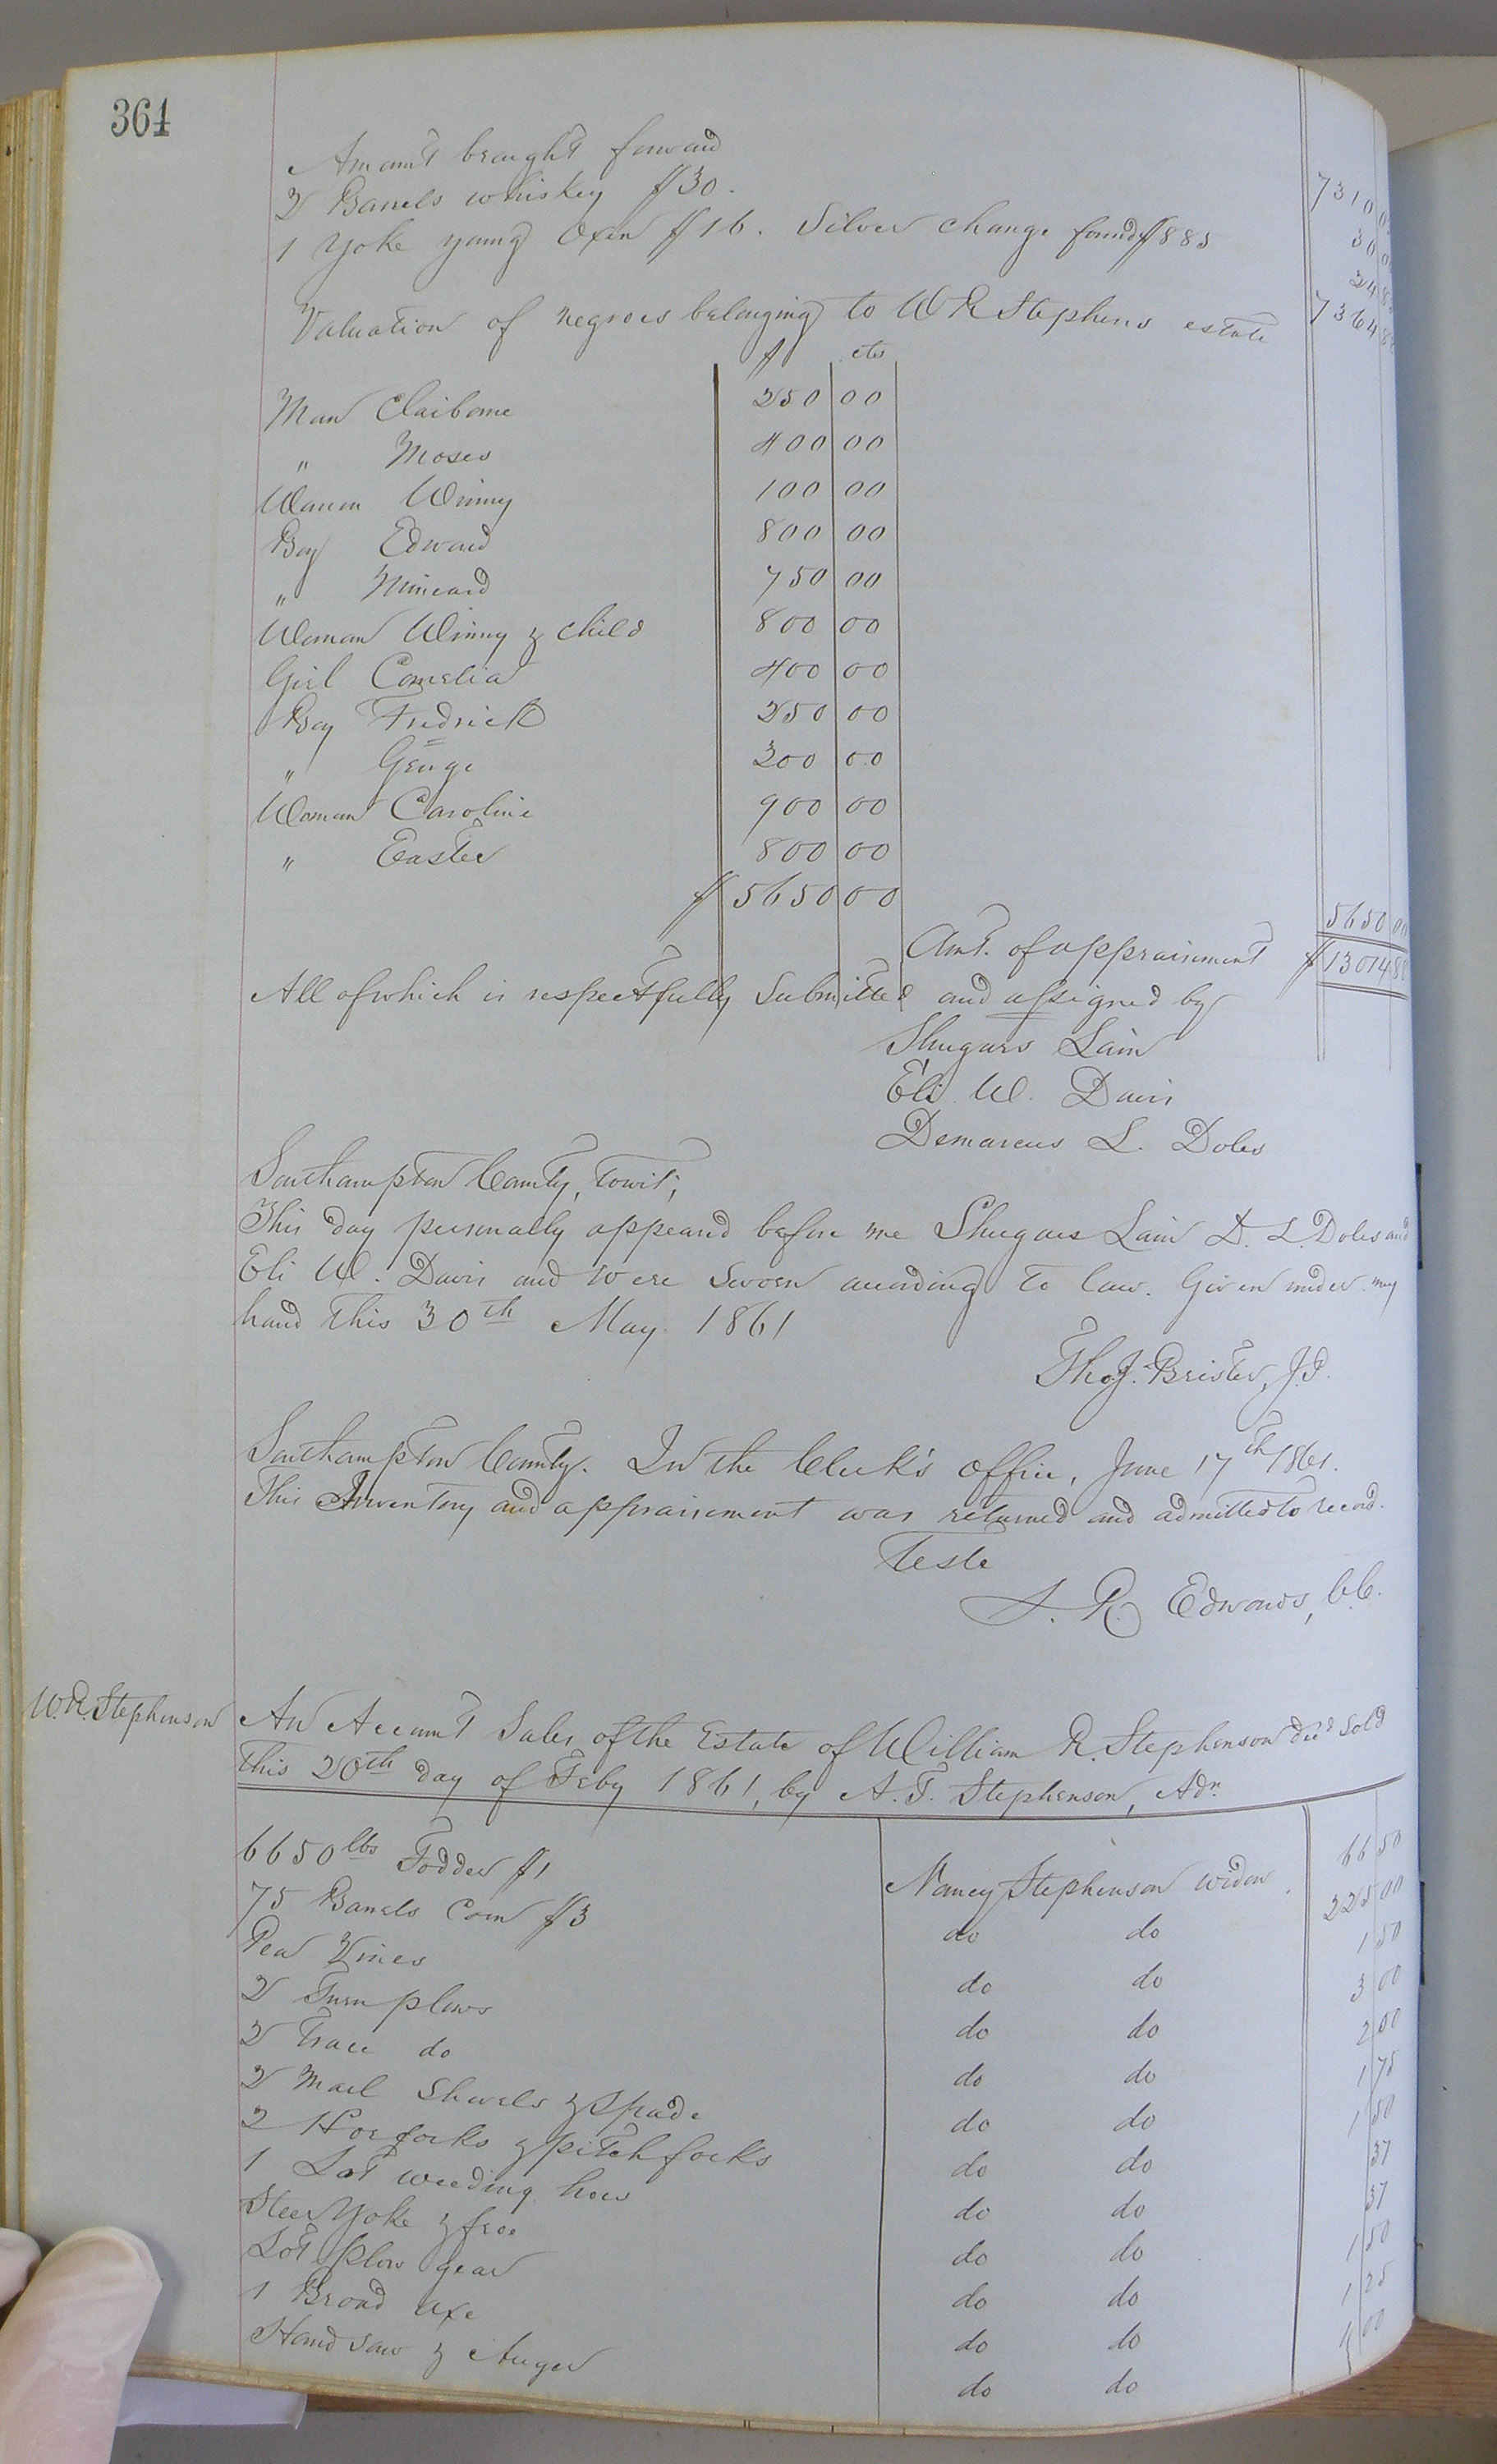 364
Amount brought forward 7310 0
2 Barrels whiskey $30. 30 0
1 Yoke young Oxen $16. Silver change found $8 85 24 8
Valuation of negroes belonging to W R Stephens estate 7364 8
$ cts
Man Claiborne 250 00
" Moses 400 00
Woman Winny 100 00
Boy Edward 800 00
" 750 00
Woman Winny & child 800 00
Girl Cornelia 400 00
Boy Fredrick 250 00
" George 200 00
Woman Caroline 900 00
" Easter 800 00
$ 5650 00
5650 00
Amt. of appraisment $13014 8
All of which is respectfully Submitted and assigned by
Shugars Lain
Eli W. Davis
Demarcus L. Doles
Southampton County, towit;
This day personally appeared before me Shugars Lain D. L. Doles and
Eli W. Davis and were Sworn according to law. Given under my
hand this 30th May. 1861
Tho. J. Brister, J.P.
Southampton County. In the Clerk's office, June 17th 1861.
This Inventory and appraisement was returned and admitted to record.
Teste
L. R. Edwards, C.C.
W. R. Stephenson
An Account Sales of the Estate of William R. Stephenson decd sold
this 20th day of Feby 1861, by A. T. Stephenson, Adr.
6650 lbs Fodder $1 Nancy Stephenson widow 66 50
75 Barrels Corn $3 do do 225 00
Pea Vines do do 1 50
2 Turn plows do do 3 00
2 Trace do do do 2 00
2 Marl Shovels & Spade do do 1 75
2 Hoe forks & pitch forks do do 1 50
1 Lot weeding hoes do do 37
Steer Yoke & froe do do 37
Lot plow gear do do 1 50
1 Broad axe do do 1 25
Hand saw & Auger do do 1 00